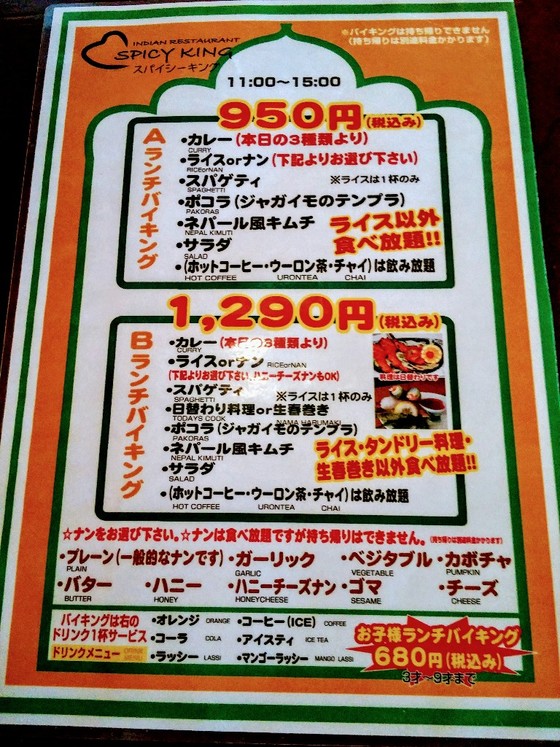 INDIAN RESTAURANT
SPICY KING
スパイシーキング
※バイキングは持ち帰りできません
(持ち帰りは別途料金かかります)
11:00～15:00
950円(税込み)
Aランチバイキング
・カレー(本日の3種類より)
CURRY
・ライスorナン(下記よりお選び下さい)
RICEorNAN
・スパゲティ ※ライスは1杯のみ
SPAGHETTI
・ポコラ(ジャガイモのテンプラ)
PAKORAS
・ネパール風キムチ
NEPAL KIMUTI
・サラダ
SALAD
ライス以外
食べ放題!!
・(ホットコーヒー・ウーロン茶・チャイ)は飲み放題
HOT COFFEE URONTEA CHAI
1,290円(税込み)
Bランチバイキング
・カレー(本日の3種類より)
CURRY
・ライスorナン RICEorNAN
(下記よりお選び下さい、ハニーチーズナンもOK)
・スパゲティ ※ライスは1杯のみ
SPAGHETTI
・日替わり料理or生春巻き
TODAYS COOK NAMA HARUMAKI
・ポコラ(ジャガイモのテンプラ)
PAKORAS
・ネパール風キムチ
NEPAL KIMUTI
・サラダ
SALAD
料理は日替わりです
ライス・タンドリー料理・
生春巻き以外食べ放題!!
・(ホットコーヒー・ウーロン茶・チャイ)は飲み放題
HOT COFFEE URONTEA CHAI
☆ナンをお選び下さい。☆ナンは食べ放題ですが持ち帰りはできません。(持ち帰りは別途料金かかります)
・プレーン(一般的なナンです) ・ガーリック ・ベジタブル ・カボチャ
PLAIN GARLIC VEGETABLE PUMPKIN
・バター ・ハニー ・ハニーチーズナン ・ゴマ ・チーズ
BUTTER HONEY HONEYCHEESE SESAME CHEESE
バイキングは右の
ドリンク1杯サービス
ドリンクメニュー
・オレンジ ORANGE ・コーヒー(ICE) COFFEE
・コーラ COLA ・アイスティ ICE TEA
・ラッシー LASSI ・マンゴーラッシー MANGO LASSI
お子様ランチバイキング
680円(税込み)
3才～9才まで